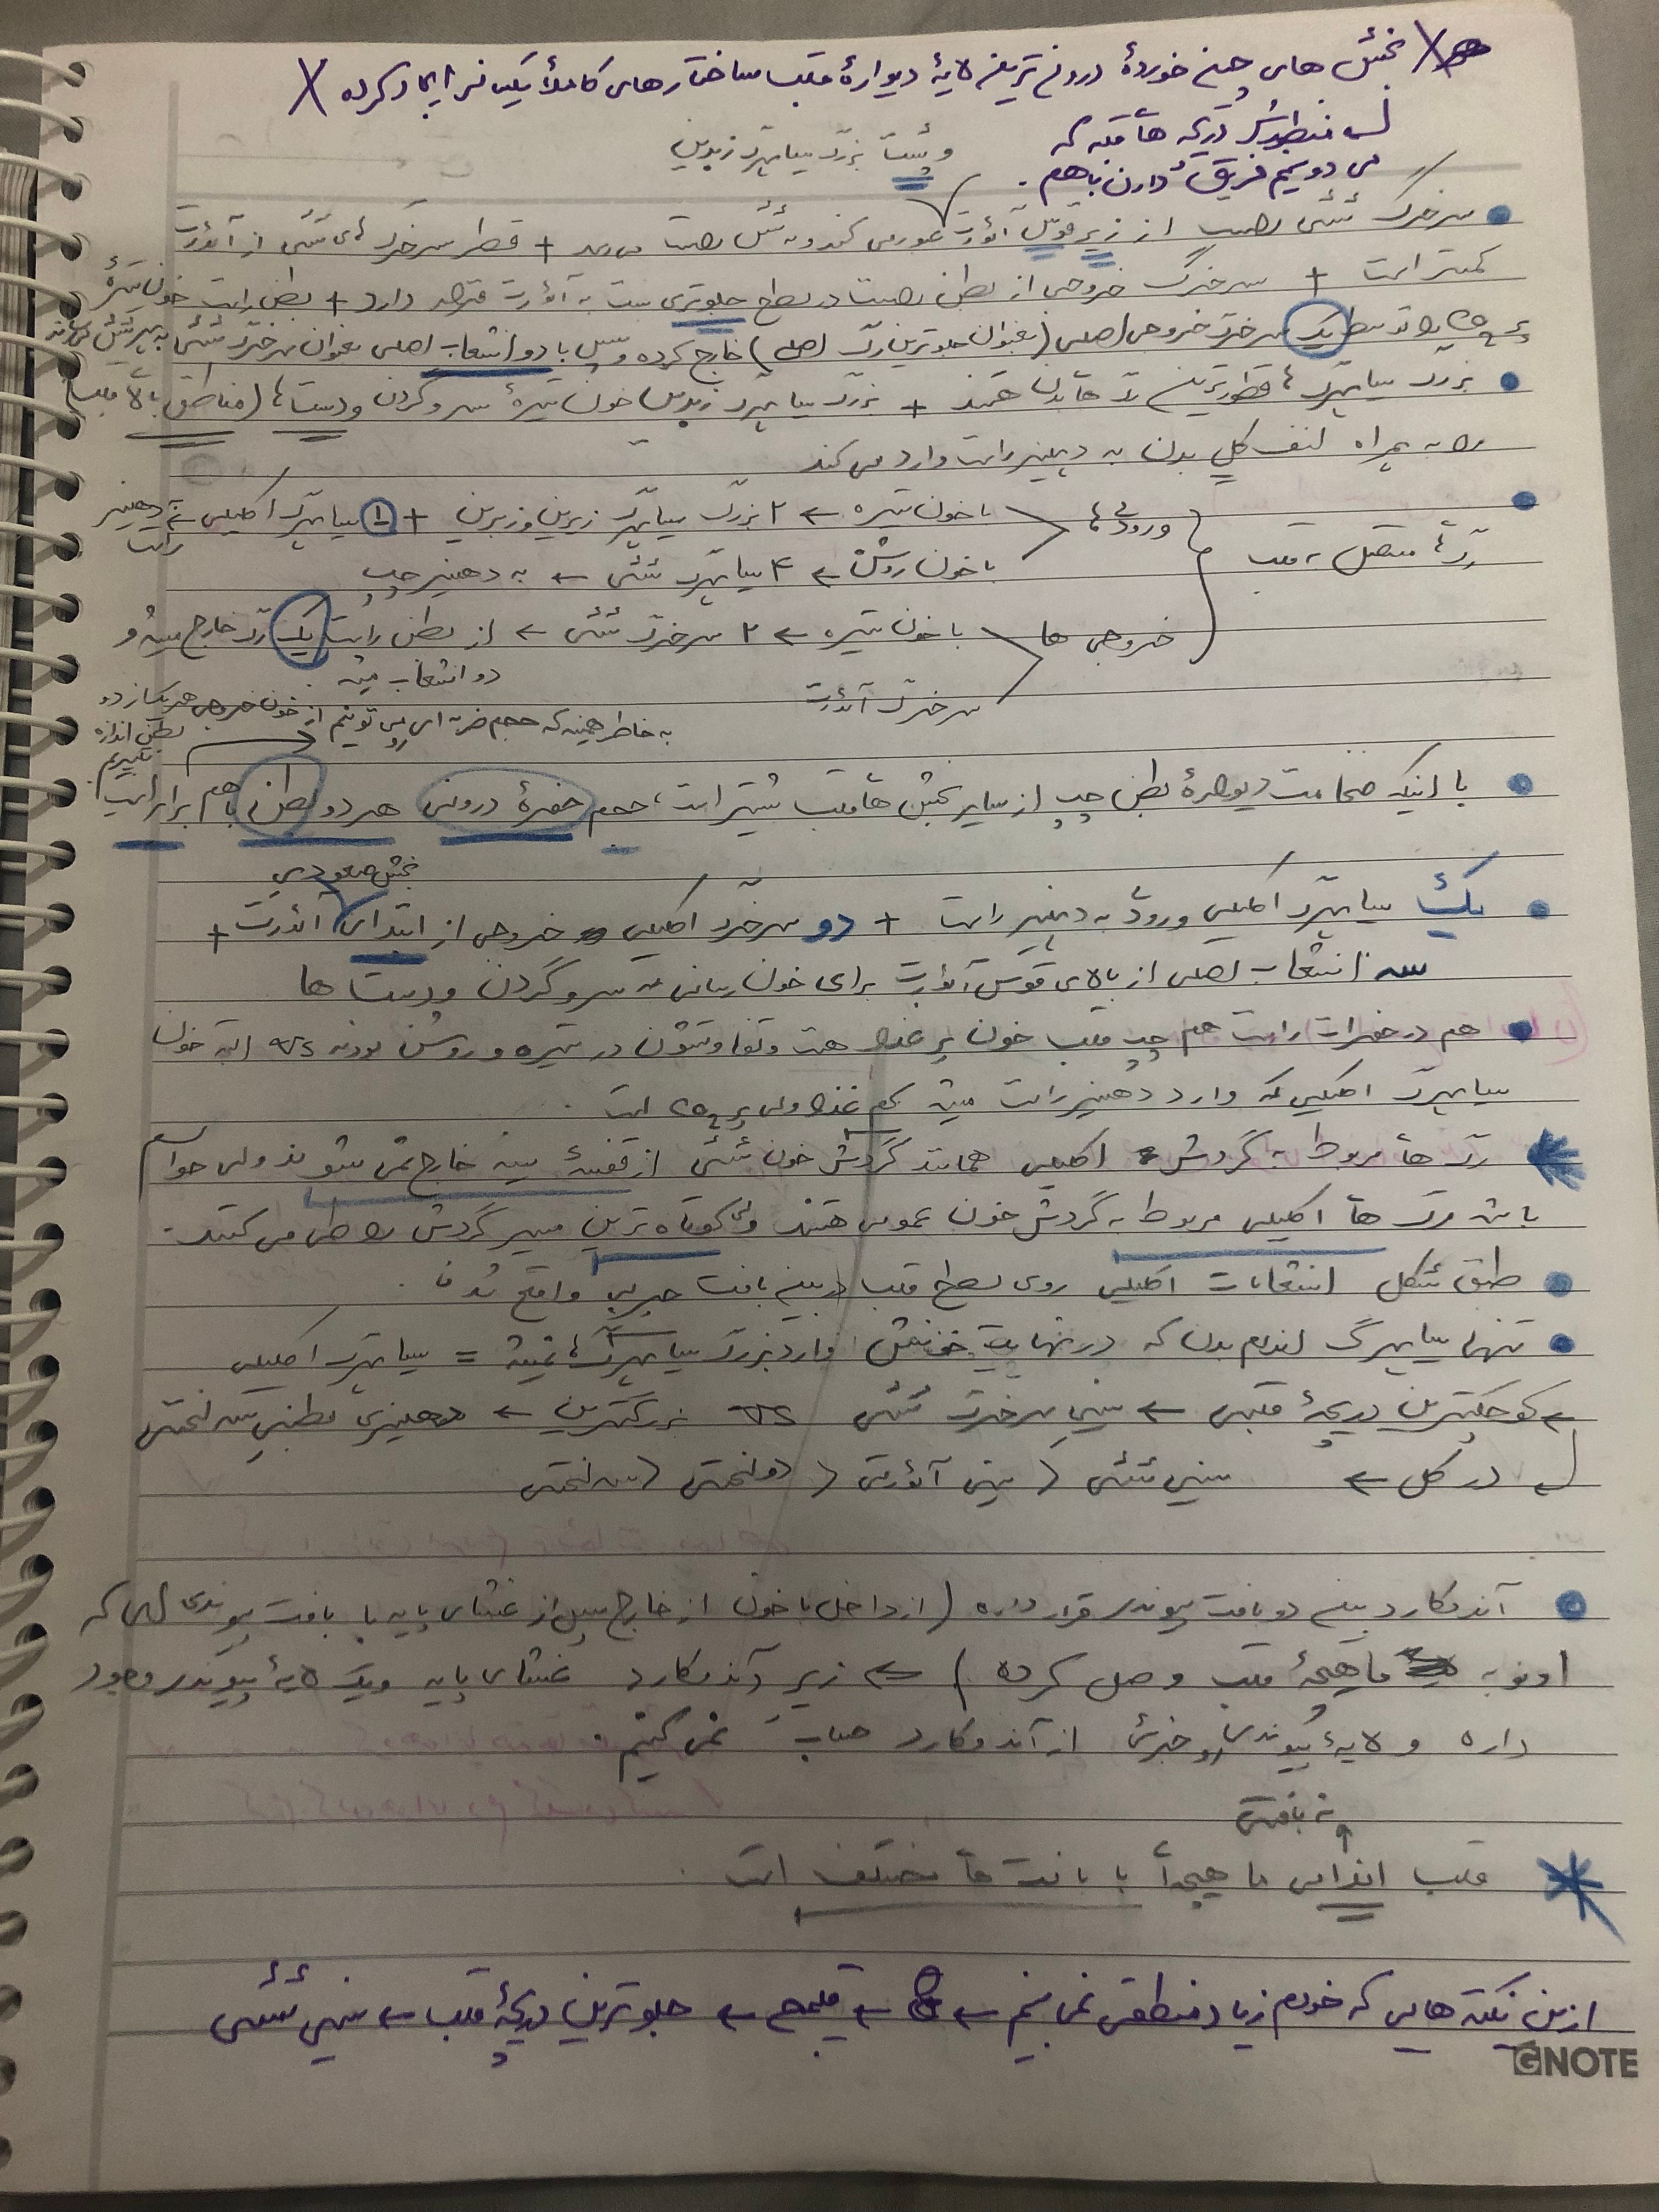 X بخش های چین خوردهٔ درونی ترین لایهٔ دیوارهٔ قلب ساختارهای کاملاً یکسانی ایجاد کرده X
منظورش دریچه های قلبه که
می دونیم فرق دارن باهم.
و پشت بزرگ سیاهرگ زبرین
سرخرگ ششی راست از زیر قوس آئورت عبور می کند و به شش راست می رسد + قطر سرخرگ های ششی از آئورت
کمتر است + سرخرگ خروجی از بطن راست در سطح جلوتری نسبت به آئورت قرار دارد + بطن راست خون تیره
را توسط یک سرخرگ خروجی اصلی (بعنوان جلوترین رگ اصلی) خارج کرده و سپس با دو انشعاب اصلی بعنوان سرخرگ ششی به هر شش می رساند
بزرگ سیاهرگ ها قطورترین رگ های بدن هستند + بزرگ سیاهرگ زبرین خون تیرهٔ سر و گردن و دست ها (مناطق بالای قلب)
را به همراه لنف کل بدن به دهلیز راست وارد می کند
رگ های متصل به قلب
ورودی ها
با خون تیره ← ۲ بزرگ سیاهرگ زیرین و زبرین + ۱ سیاهرگ اکلیلی ← به دهلیز راست
با خون روشن ← ۴ سیاهرگ ششی ← به دهلیز چپ
خروجی ها
با خون تیره ← ۲ سرخرگ ششی ← از بطن راست یک رگ خارج میشه و
دو انشعاب میشه
سرخرگ آئورت
به خاطر همینه که حجم ضربه ای رو می تونیم از خون خروجی هر یک از دو
بطن اندازه
بگیریم.
با اینکه ضخامت دیوارهٔ بطن چپ از سایر بخش های قلب بیشتر است، حجم حفرهٔ درونی هر دو بطن باهم برابر است!
بخش صعودی
یک سیاهرگ اکلیلی ورودی به دهلیز راست + دو سرخرگ اکلیلی خروجی از ابتدای آئورت +
سه انشعاب اصلی از بالای قوس آئورت برای خون رسانی به سر و گردن و دست ها
هم در حفرات راست هم چپ قلب خون پر غذا هست و تفاوتشون در تیره و روشن بودنه vs البته خون
سیاهرگ اکلیلی که وارد دهلیز راست میشه کم غذا ولی پر CO2 است.
رگ های مربوط به گردش اکلیلی همانند گردش خون ششی از قفسهٔ سینه خارج نمی شوند ولی حواسم
باشه رگ های اکلیلی مربوط به گردش خون عمومی هستند ولی کوتاه ترین مسیر گردش را طی می کنند.
طبق شکل انشعابات اکلیلی روی سطح قلب در بین بافت چربی واقع شدن.
تنها سیاهرگ اندام بدن که در نهایت خونش وارد بزرگ سیاهرگ ها نمیشه = سیاهرگ اکلیلی
← کوچکترین دریچهٔ قلبی ← سینی سرخرگ ششی vs بزرگترین ← دهلیزی بطنی سه لختی
در کل ← سینی ششی < سینی آئورتی < دولختی < سه لختی
آندوکارد بین دو بافت پیوندی قرار داره (از داخل با خون از خارج پس از غشای پایه با بافت پیوندی ای که
اونو به ماهیچهٔ قلب وصل کرده) ← زیر آندوکارد غشای پایه و یک لایهٔ پیوندی وجود
داره و لایهٔ پیوندی رو جزئی از آندوکارد حساب نمی کنیم.
نه بافتی
قلب اندامی ماهیچه ای با بافت های مختلف است.
از این نکته هایی که خودم زیاد منطقی نمی بینم ← قلمچی ← جلوترین دریچهٔ قلب ← سینی ششی
GNOTE